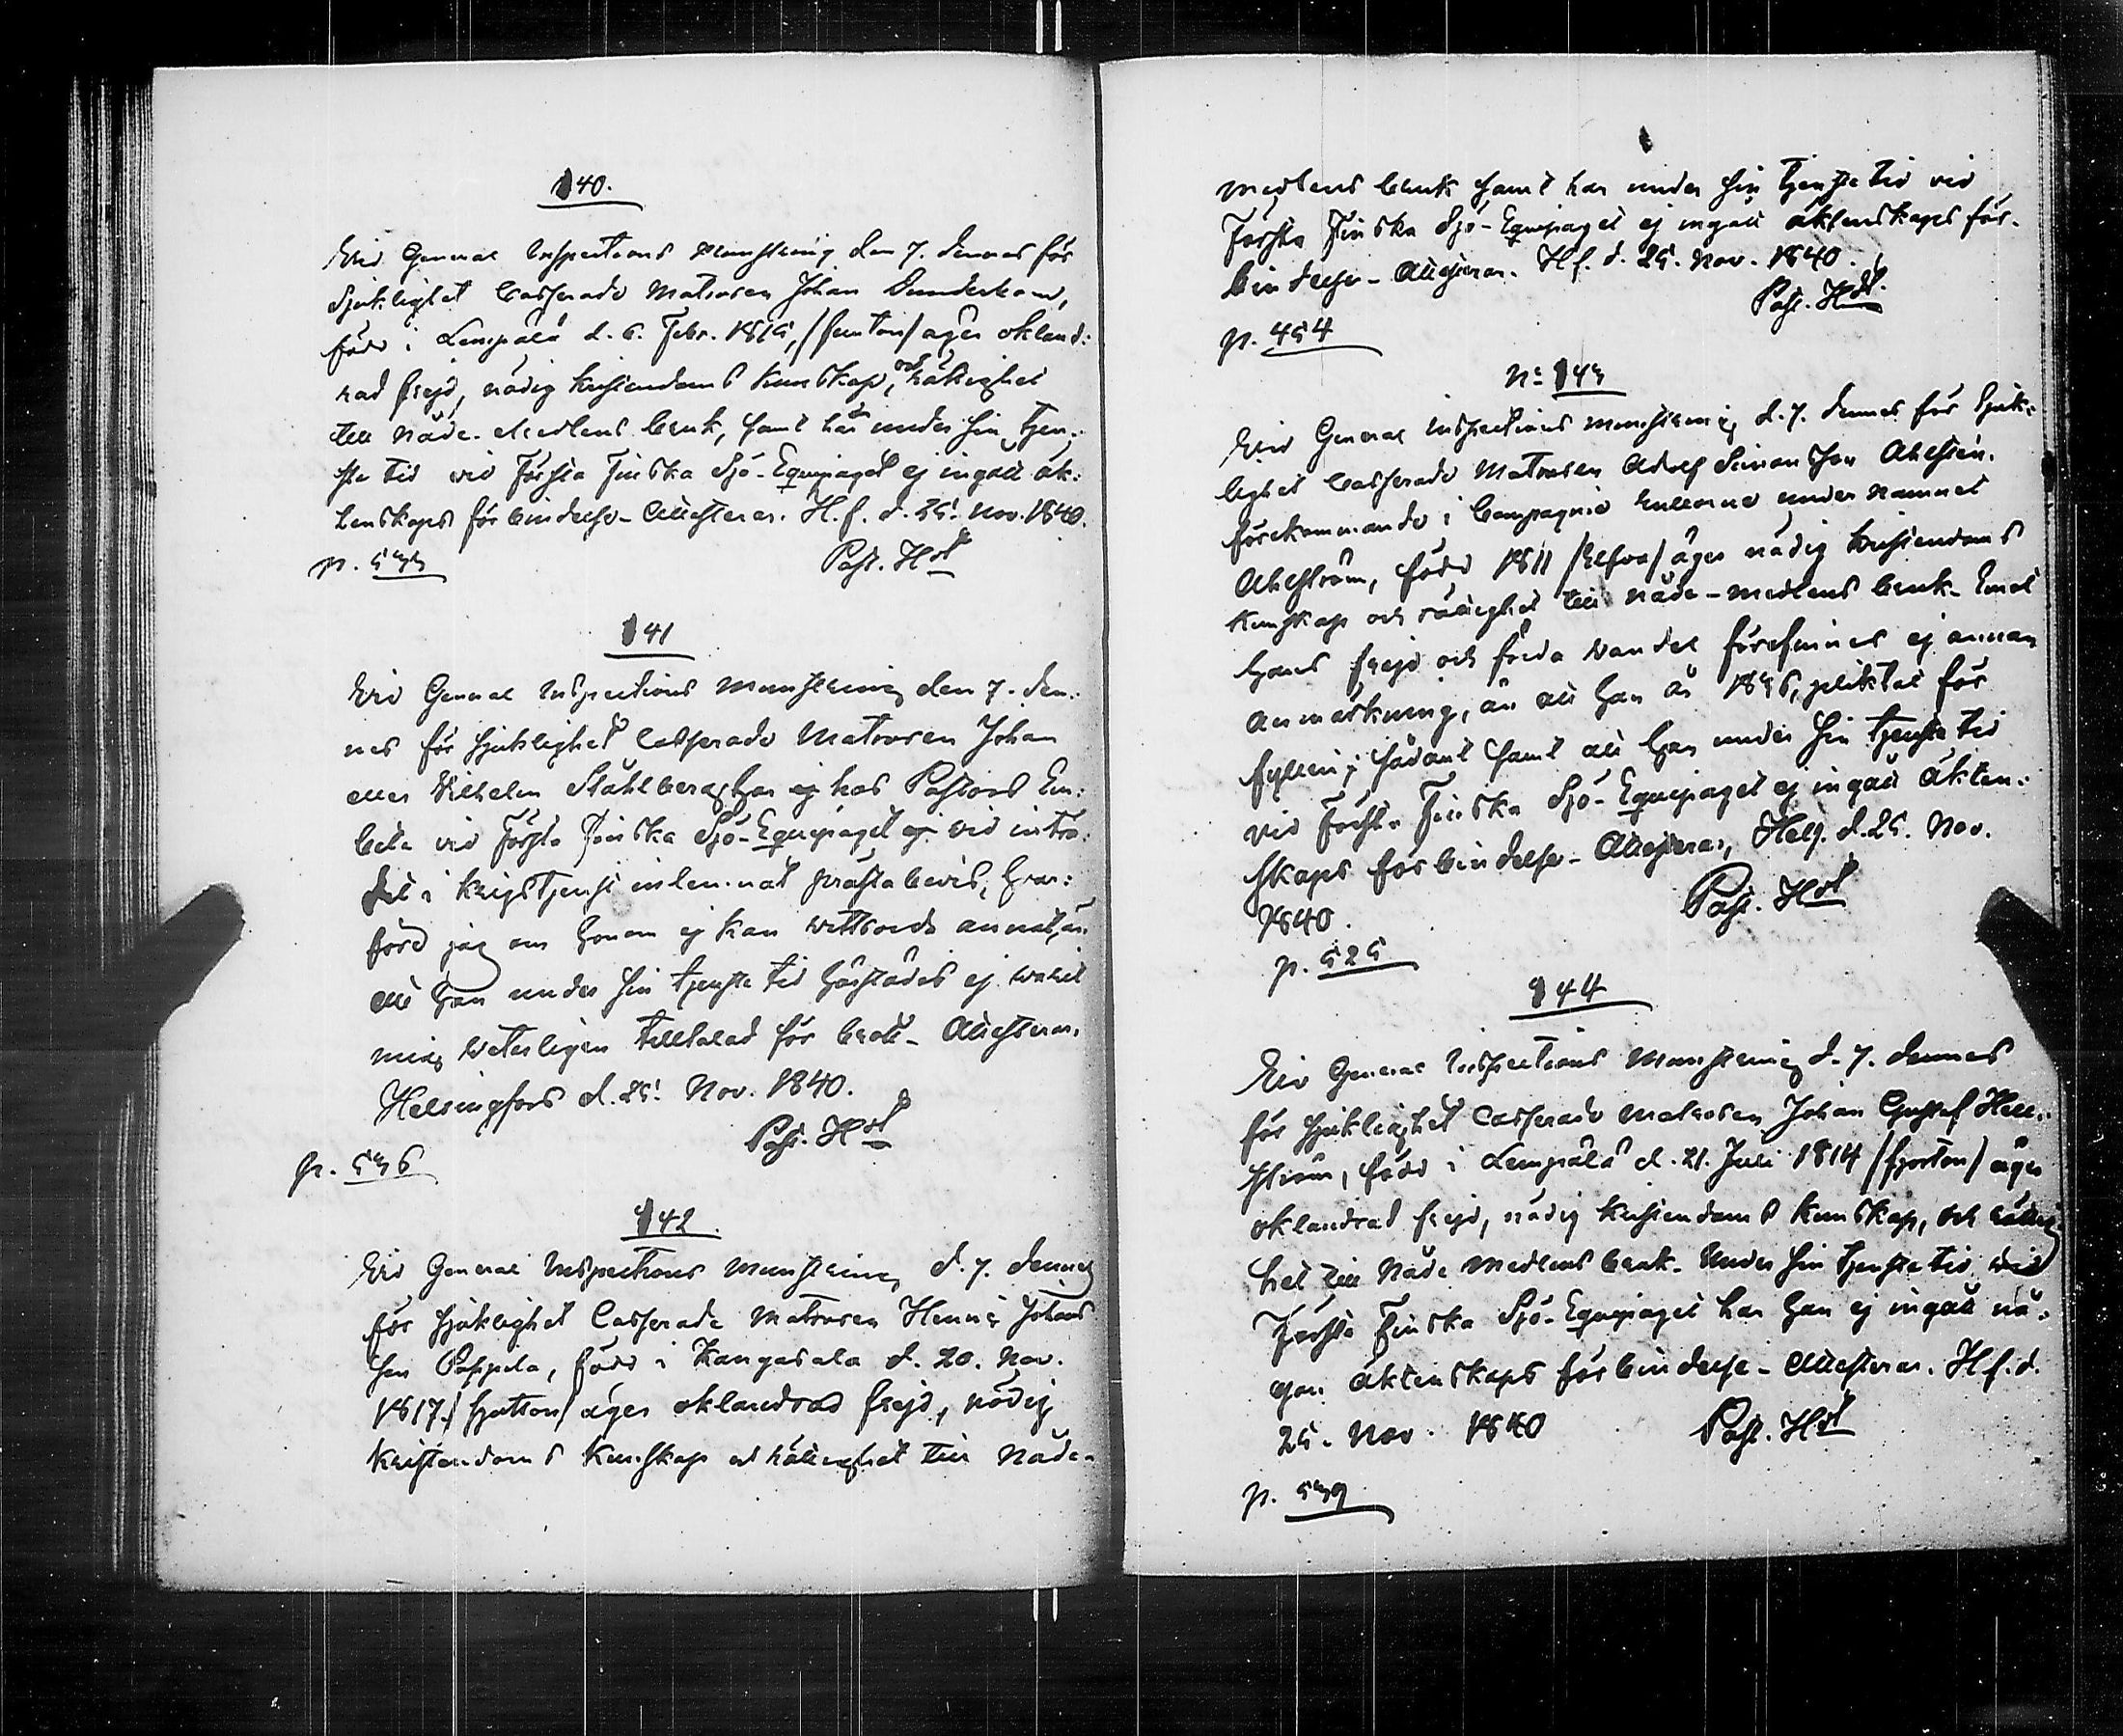 140.
Vid General Inspections Munstring den 7. dennes för
Sjuklighet Casserade Matrosen Johan Dunderberg,
född i Lempälä d. 6. Febr. 1815, /femton/ äger okland:
rad frejd, nödig kristendoms kunskap, och rättighet
till Nåde-Medlens bruk, samt har under sin tjen:
ste tid vid Första Finska Sjö-Equipaget ej ingått äk:
tenskaps förbindelse - Attesteras. H.f. d. 25. Nov. 1840.
p. 533 Past. Hst
141
Vid General Inspections Munstring den 7. den:
nes för sjuklighet Casserade Matrosen Johan
eller Vilhelm Ståhlberg har ej hos Pastors Em:
bete vid Första Finska Sjö-Equipaget ej vid inträ:
det i krigstjenst inlemnat prästabevis, hvar:
före jag om honom ej kan vittsorda annat, än
att han under sin tjenste tid härstädes ej varit
mig veterligen tilltalad för brott - Attesteras.
Helsingfors d. 25. Nov. 1840.
Past. Hst
p. 536
142.
Vid General Inspections Munstring d. 7. dennes
för sjuklighet Casserade Matrosen Henric Johans
son Pappila, född i Kangasala d. 20. Nov.
1817. /sjutton/ äger oklandrad frejd, nödig
kristendoms kunskap och rättighet till Nåde-
medlens bruk samt har under sin tjenste tid vid
Första Finska Sjö-Equipaget ej ingått äktenskaps för-
bindelse - Attesteras. Hf. d. 25. Nov. 1840.
Past. Hst.
p. 454
No 143
Vid General Inspections Munstring d. 7. dennes för Sjuk-
lighet Casserade Matrosen Adolf Simonsson Ahlsten.
förekommande i Compagnie rullorne under namnet
Ahlström, född 1811 /Elfva/ äger nödig kristendoms
kunskap och rättighet till nåde-medlens bruk. Emot
hans frejd och förda vandel förefinnes ej annan
anmärkning, än att han år 1836, pliktat för
fylleri; sådant samt att han under sin tjenste tid
vid Första Finska Sjö-Equipaget ej ingått äkten:
skaps förbindelse - Attesteras, Helf. d. 25. Nov.
1840. Past. Hst
p. 525.
144
Vid General Inspections Munstring d. 7. dennes
för sjuklighet Casserade Matrosen Johan Gustaf Hell:
ström, född i Lempälä d. 21. Juli 1814 /fjorton/ äger
oklandrad frejd, nödig kristendoms kunskap, och rättig
het till Nåde Medlens bruk. Under sin tjenste tid vid
Första Finska Sjö-Equipaget har han ej ingått nå:
gon äktenskaps förbindelse - Attesteras. Hf. d.
25. Nov. 1840 Past. Hst
p. 539